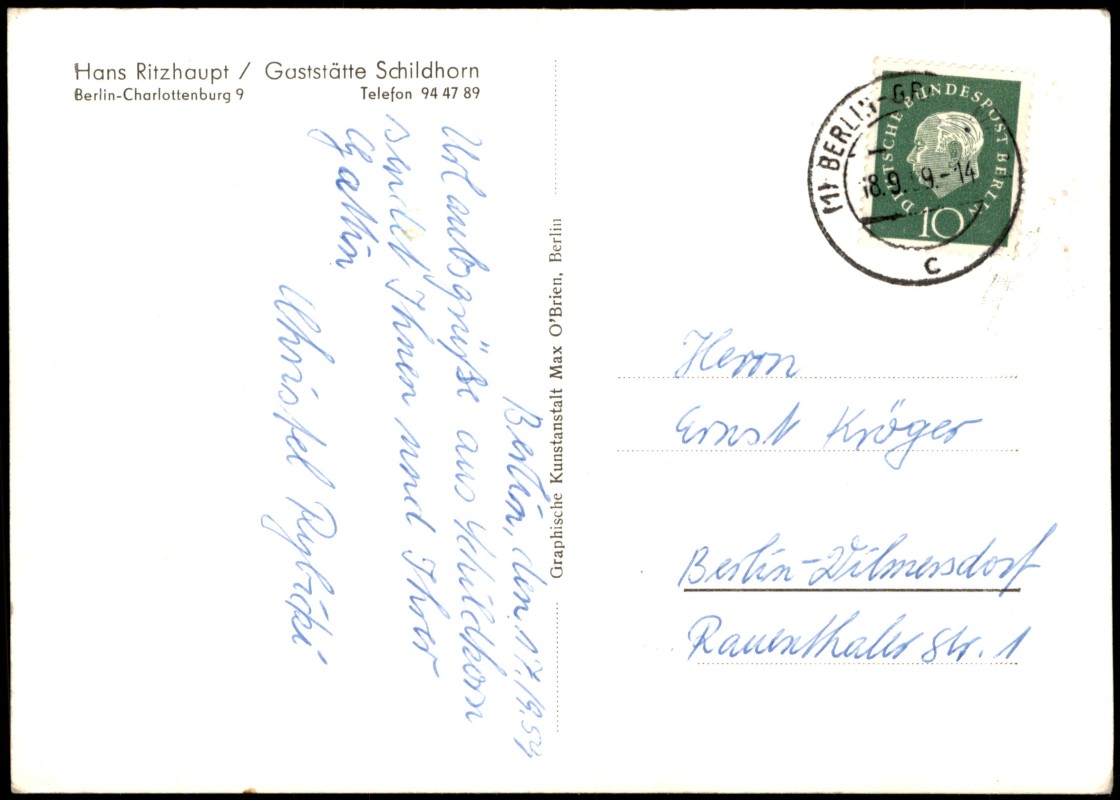 Hans Ritzhaupt / Gaststätte Schildhorn
Berlin-Charlottenburg 9 Telefon 94 47 89
Berlin, den 17.9.59
Urlaubsgrüße aus Schildhorn
sendet Ihnen und Ihrer
Gattin
Christel Rybicki
Graphische Kunstanstalt Max O'Brien, Berlin
DEUTSCHE BUNDESPOST BERLIN
10
(1) BERLIN-GR
18.9.59.-14
c
Herrn
Ernst Kröger
Berlin-Wilmersdorf
Rauenthaler Str. 1